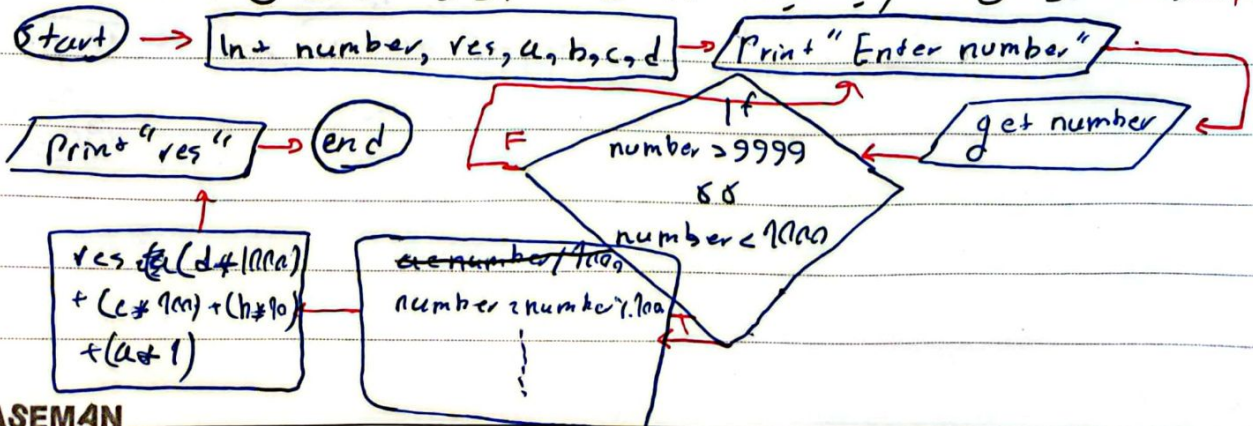 Start
Int number, res, a, b, c, d
Print "Enter number"
get number
If
number >9999
&&
number < 1000
F
T
number = number%100
res = (d*1000)
+ (c*100) + (b*10)
+(a*1)
Print "res"
end
ASEMAN